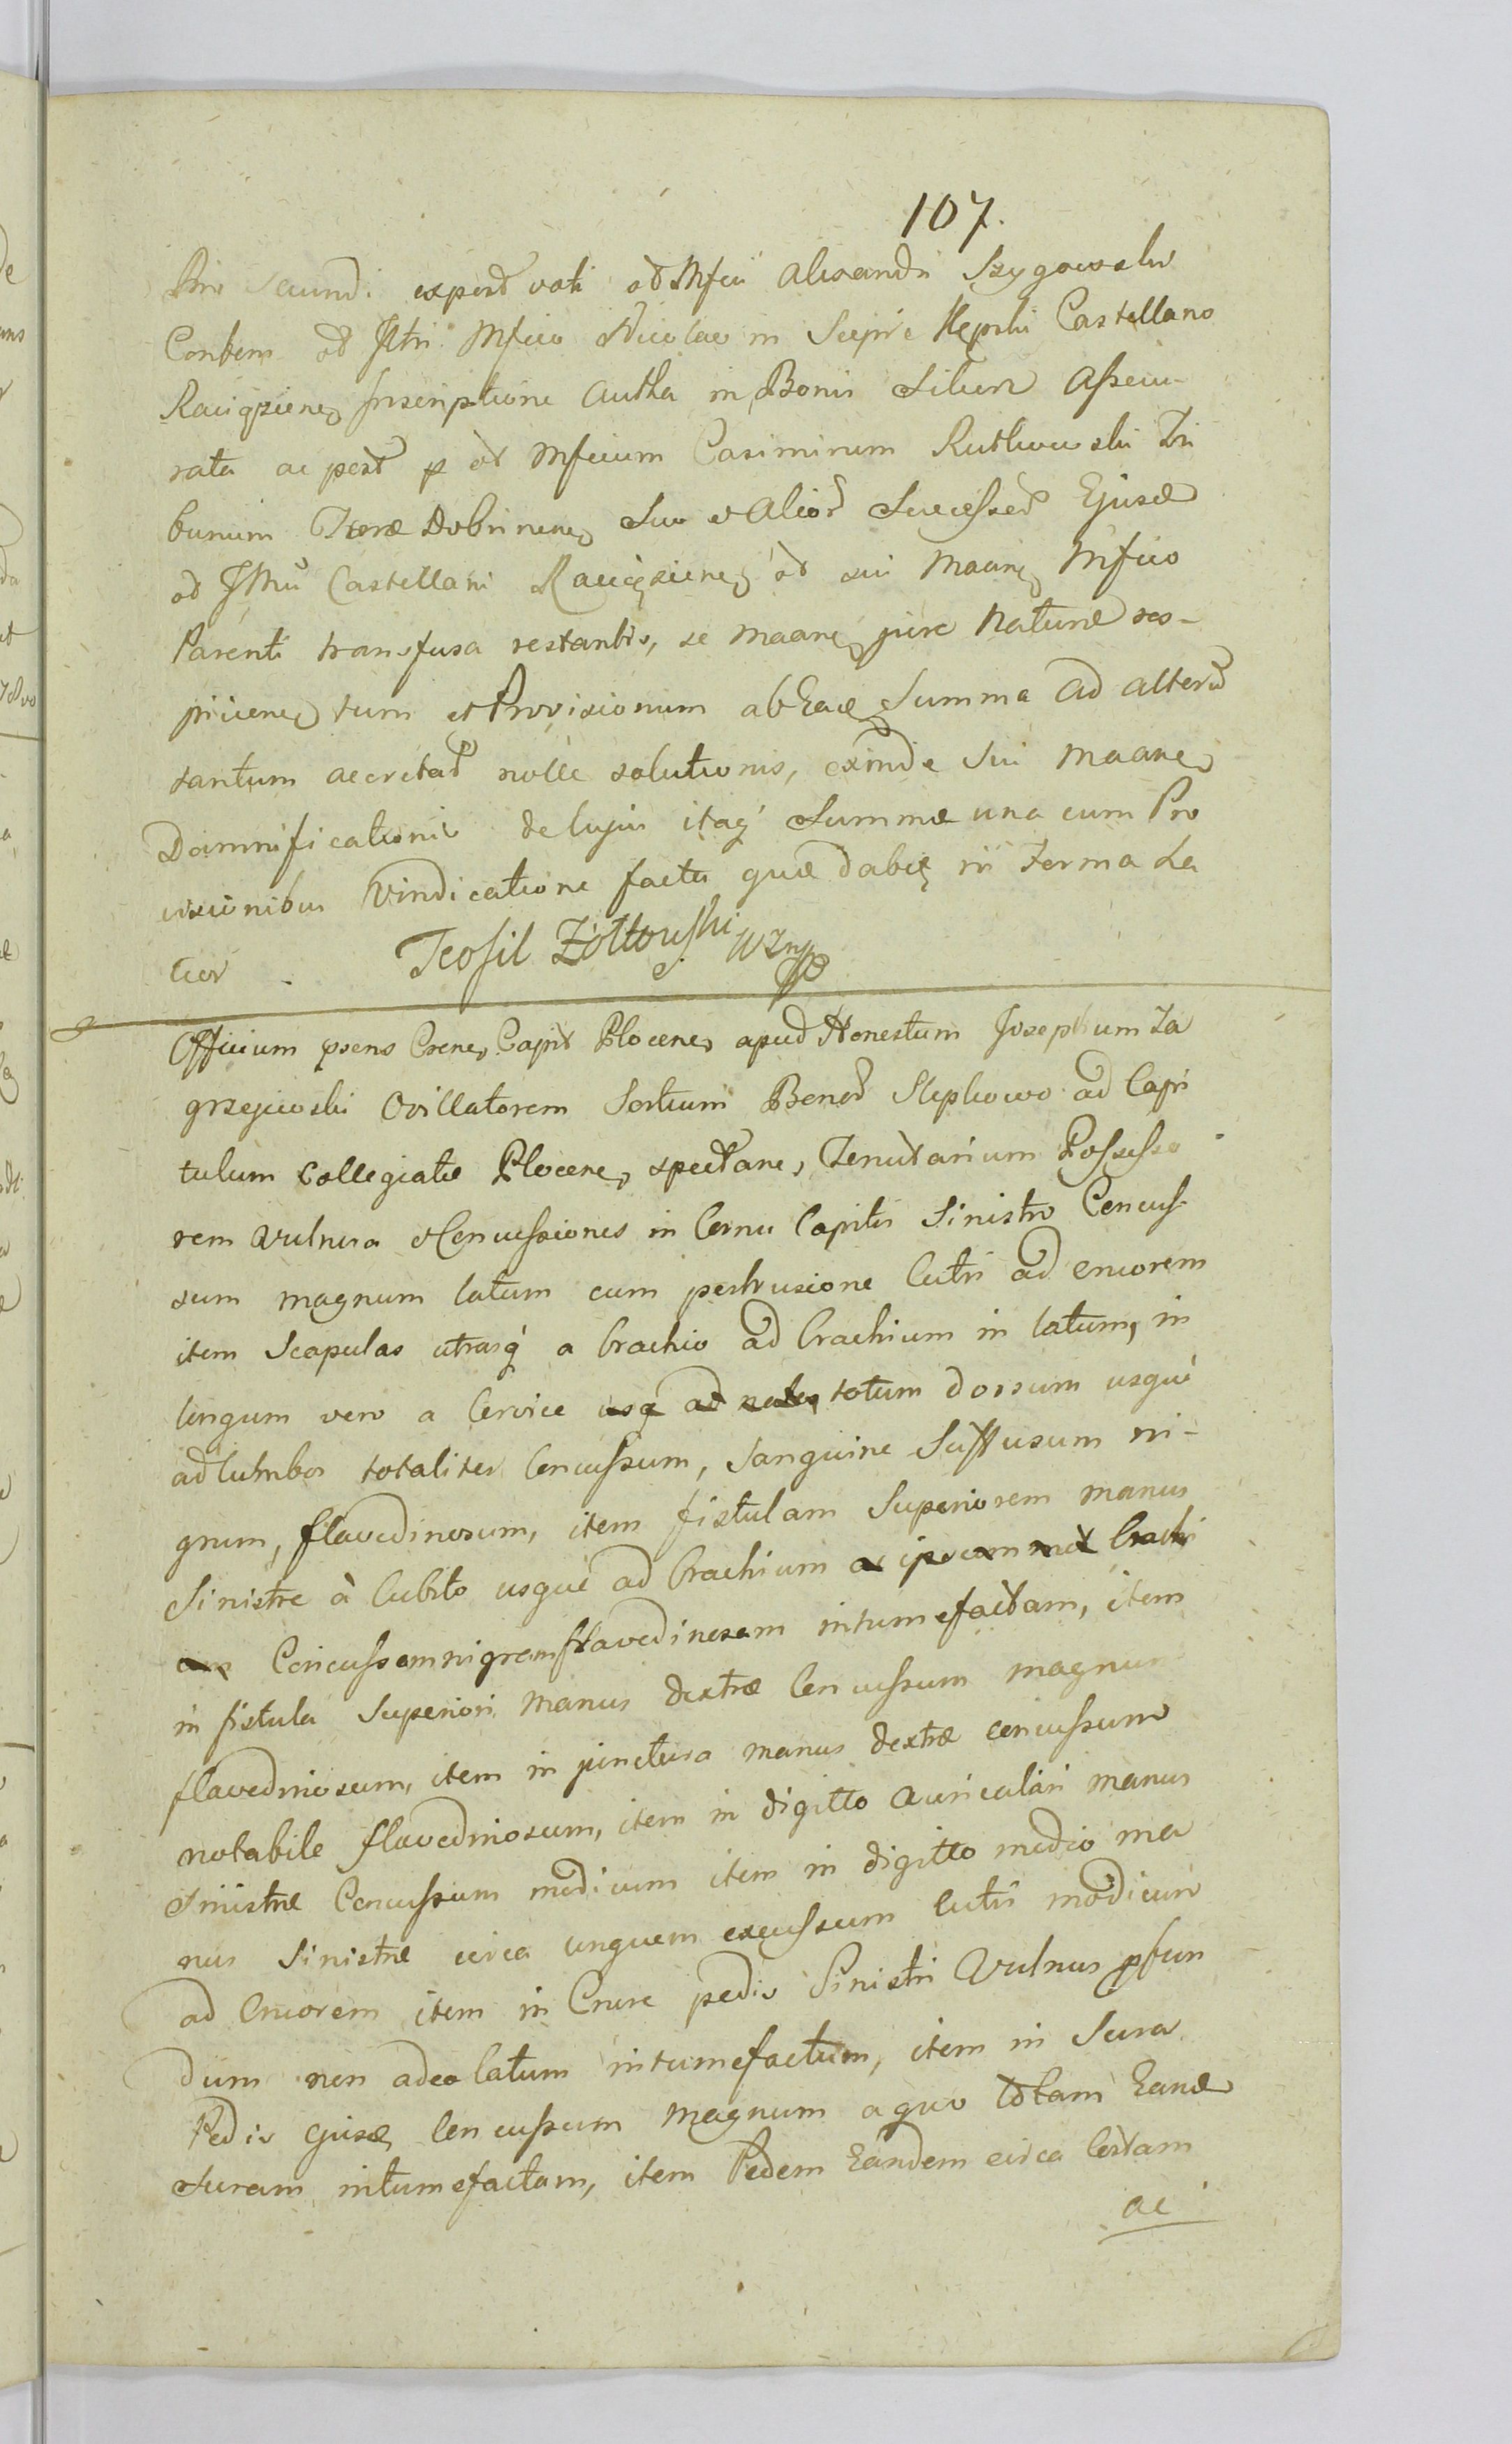 107.
secundi voti Mfici Alexandri Szygowski
od Mfico Nicolao in Sierpie Kępski Castellano
Raciąziene Inscriptione in Bonis Assecu-
rata ac post p od Mficum Casimirum Rutkowski Tri
bunum Terræ Dobrinene, Suo et Alior Successor Ejusd
od Castellani Raciąziene, od sui Maane, Mfico
Parenti transfusa restantis, se Maane, jure Naturæ res-
piciene, tum et Provisionum ab Ead Summa ad
tantum nolle solutionis, exinde Sui Maane,
Damnificationis itaq Summæ una cum Pro
visionibus Vindicatione facta ni Terma La
tior. Teofil Żółtowski
Officium psens Csene, Capit Plocene, apud Honestum Josephum Za
grzejewski Ovillatorem Sortium Bonor Slepkowo ad Capi
tulum Collegiatæ Plocene, spectane, Tenutarium Possesso
rem Vulnera et Concussiones in Cornu Capitis Sinistro Concus-
sum magnum latum cum pertrusione Cutis ad cruorem
item Scapulas utrasq a brachio ad brachium in latum, in
longum vero a Cervice usq ad nates totum dorsum usque
ad lumbos totaliter Concussum, Sanguine Suffusum ni-
grum, flavedinosum, item fistulam Superiorem manus
Sinistre à Cubito usque ad brachium ac brachi
um Concussam nigram flavedinosam intumefactam, item
in fistula Superiori manus dextræ Concussum magnum
flavedinosum, item in junctura manus dextræ concussum
notabile flavedinosum, item in digitto Auriculari manus
Sinistræ Concussum modicum item in digitto medio ma
nus Sinistræ circa unguem excussum cutis modicum
ad Cruorem item in Crure pedis Sinistri Vulnus pfun
dum non adeo latum intumefactum, item in Sura
Pedis Ejusd, Concussum magnum a quo totam Eand
Suram intumefactam, item Pedem Eandem circa Certam
ac